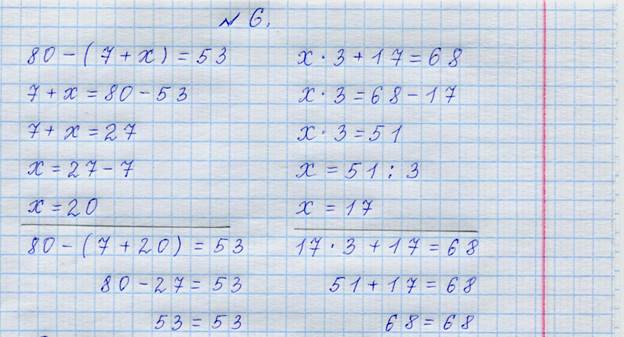 № 6.
80 - ( 7 + x ) = 53
7 + x = 80 - 53
7 + x = 27
x = 27 - 7
x = 20
80 - ( 7 + 20 ) = 53
80 - 27 = 53
53 = 53
x · 3 + 17 = 68
x · 3 = 68 - 17
x · 3 = 51
x = 51 : 3
x = 17
17 · 3 + 17 = 68
51 + 17 = 68
68 = 68